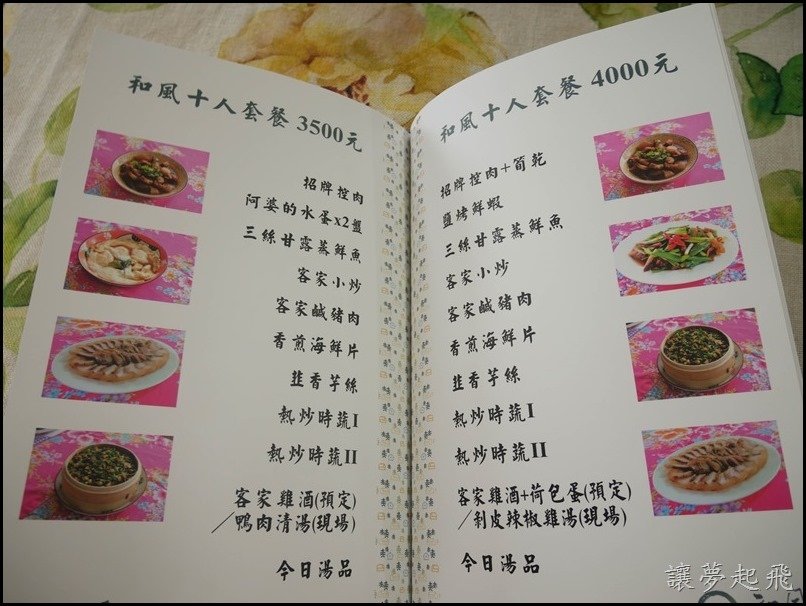 和風十人套餐 3500元
招牌控肉
阿婆的水蛋x2盤
三絲甘露蒸鮮魚
客家小炒
客家鹹豬肉
香煎海鮮片
韭香芋絲
熱炒時蔬I
熱炒時蔬II
客家雞酒(預定)
/鴨肉清湯(現場)
今日湯品
和風十人套餐 4000元
招牌控肉+筍乾
鹽烤鮮蝦
三絲甘露蒸鮮魚
客家小炒
客家鹹豬肉
香煎海鮮片
韭香芋絲
熱炒時蔬I
熱炒時蔬II
客家雞酒+荷包蛋(預定)
/剝皮辣椒雞湯(現場)
今日湯品
讓夢起飛